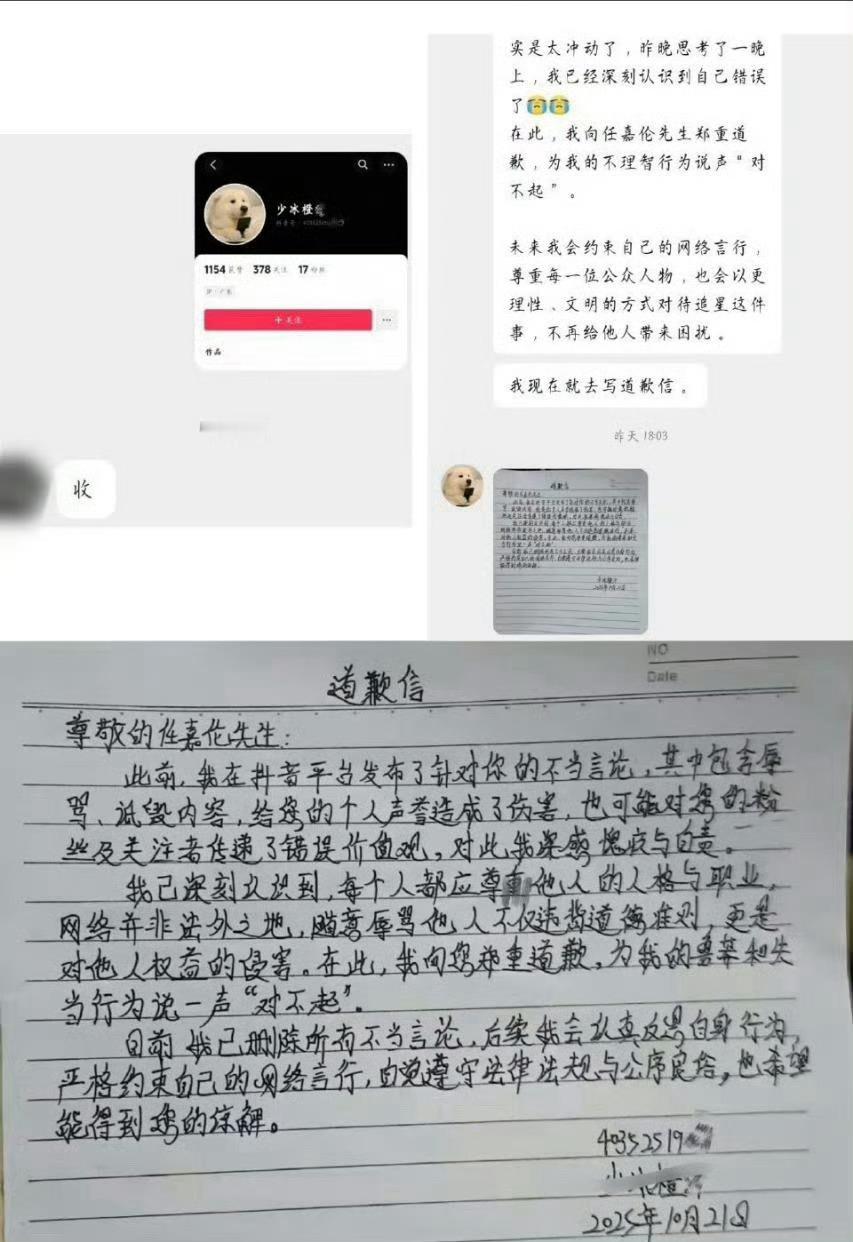 少冰橙
1154 获赞 378 关注 17 粉丝
IP：广东
+ 关注
作品
收
实是太冲动了，昨晚思考了一晚
上，我已经深刻认识到自己错误
了😭😭
在此，我向任嘉伦先生郑重道
歉，为我的不理智行为说声“对
不起”。
未来我会约束自己的网络言行，
尊重每一位公众人物，也会以更
理性、文明的方式对待追星这件
事，不再给他人带来困扰。
我现在就去写道歉信。
昨天 18:03
NO
Date
道歉信
尊敬的任嘉伦先生：
此前，我在抖音平台发布了针对你的不当言论，其中包含辱
骂、诋毁内容，给您的个人声誉造成了伤害，也可能对您的粉
丝及关注者传递了错误价值观，对此我深感愧疚与自责。
我已深刻认识到，每个人都应尊重他人的人格与职业，
网络并非法外之地，随意辱骂他人不仅违背道德准则，更是
对他人权益的侵害。在此，我向您郑重道歉，为我的鲁莽和失
当行为说一声“对不起”。
目前我已删除所有不当言论，后续我会认真反思自身行为，
严格约束自己的网络言行，自觉遵守法律法规与公序良俗，也希望
能得到您的谅解。
40352519
2025年10月21日